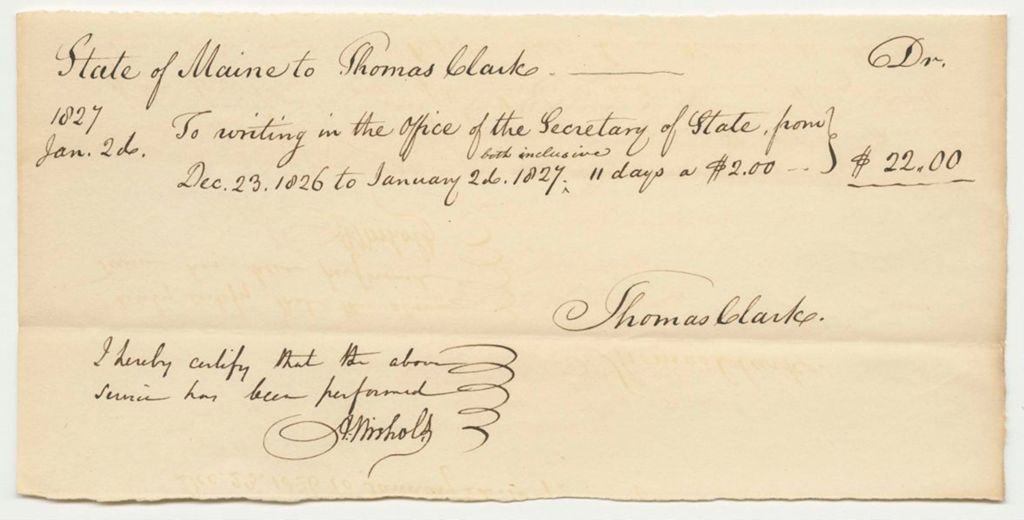 State of Maine to Thomas Clark. Dr.
1827
Jan. 2d. To writing in the Office of the Secretary of State, from
both inclusive
Dec. 23. 1826 to January 2d. 1827. ‸ 11 days a $2.00 -- $ 22.00
Thomas Clark.
I hereby certify that the above
service has been performed
A. Nichols